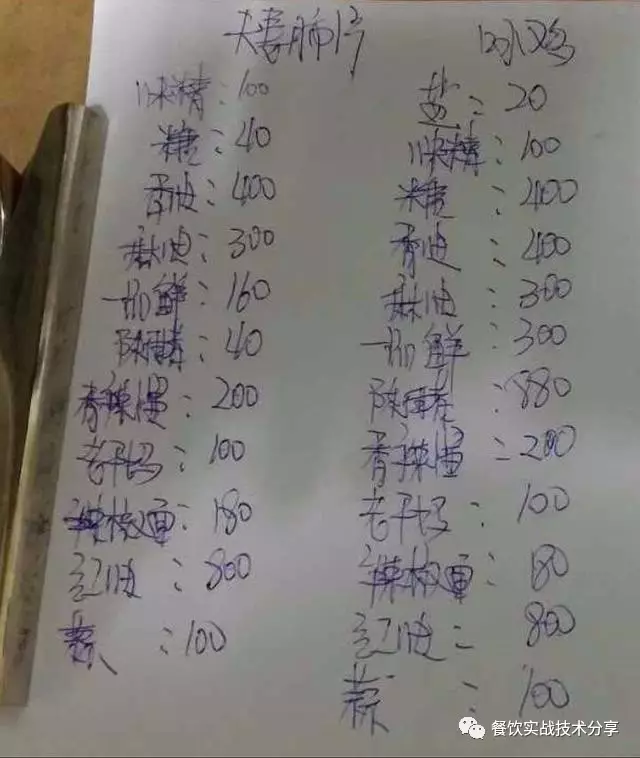 夫妻肺片
味精：100
糖：40
香油：400
麻油：300
一品鲜：160
陈醋：40
香辣酱：200
老干妈：100
辣椒面：180
红油：800
蒜：100
口水鸡
盐：20
味精：100
糖：400
香油：400
麻油：300
一品鲜：300
陈醋：880
香辣酱：200
老干妈：100
辣椒面：180
红油：800
蒜：100
餐饮实战技术分享